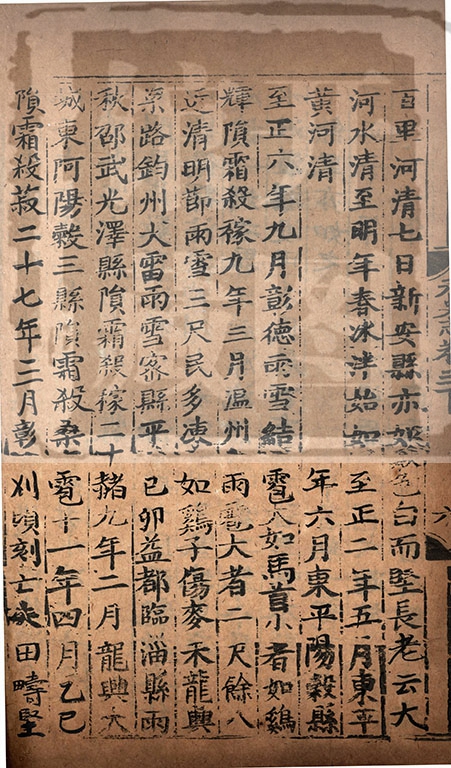 百里河清七日新安縣亦如色白而堅長老云大
河水清至明年春冰泮始如至正二年五月東平
黃河清年六月東平陽穀縣
至正六年九月彰德雨雪結雹大如馬首小者如鷄
輝隕霜殺稼九年三月溫州雨雹大者二尺餘八
近清明節雨雪三尺民多凍如鷄子傷麥禾龍興
梁路鈞州大雷雨雪密縣平已卯益都臨淄縣雨
秋邵武光澤縣隕霜殺稼二十赭九年二月龍興大
城東阿陽穀三縣隕霜殺桑雹十一年四月乙巳
隕霜殺菽二十七年三月彰刈頃刻亡失田疇堅